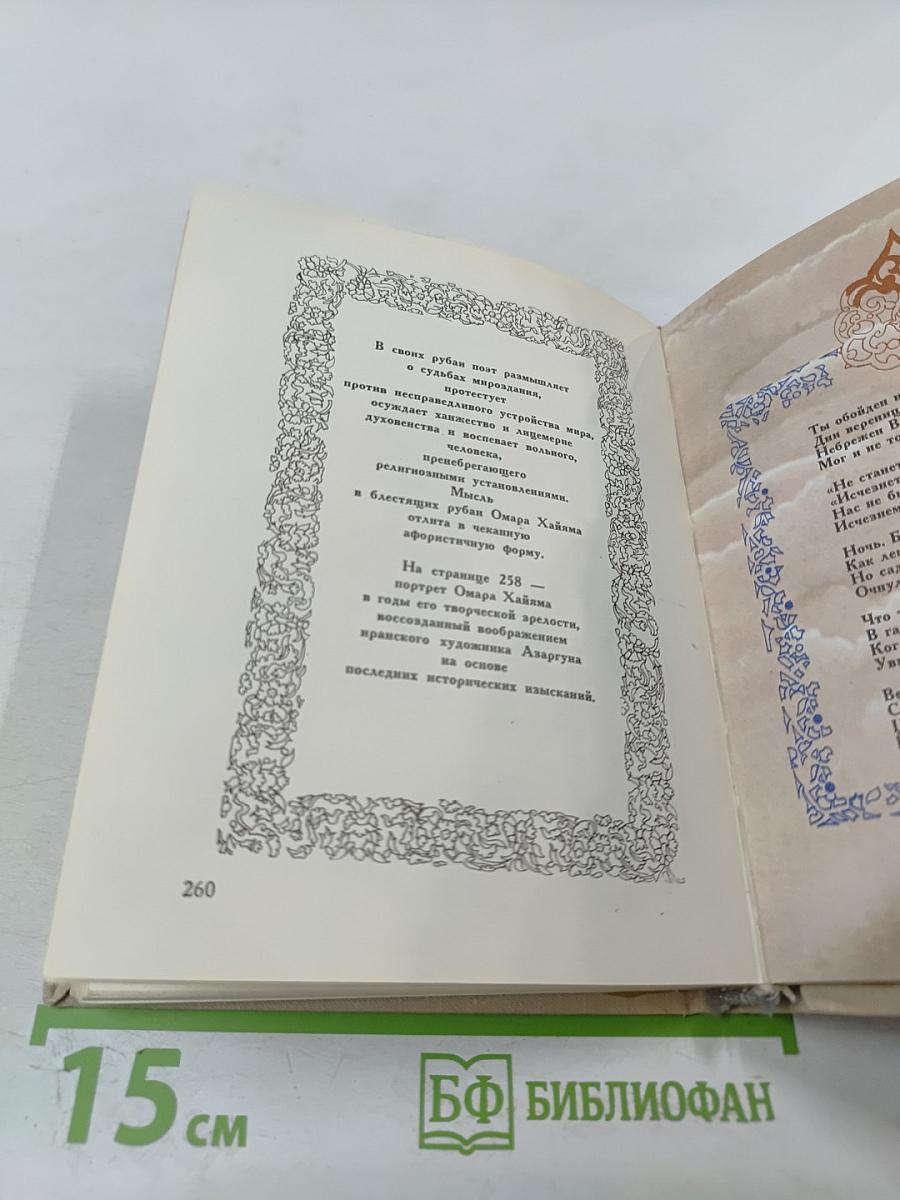 В своих рубаи поэт размышляет
о судьбах мироздания,
протестует
против несправедливого устройства мира,
осуждает ханжество и лицемерие
духовенства и воспевает вольного,
человека,
пренебрегающего
религиозными установлениями.
Мысль
в блестящих рубаи Омара Хайяма
отлита в чеканную
афористичную форму.
На странице 258 —
портрет Омара Хайяма
в годы его творческой зрелости,
воссозданный воображением
иранского художника Азаргуна
на основе
последних исторических изысканий.
260
Ты обойден
Дни
Небрежен
Мог и не
«Не станет
«Исчезнет
Нас не
Исчезнем
Ночь.
Как
Но
Что
В
15 см
БФ БИБЛИОФАН